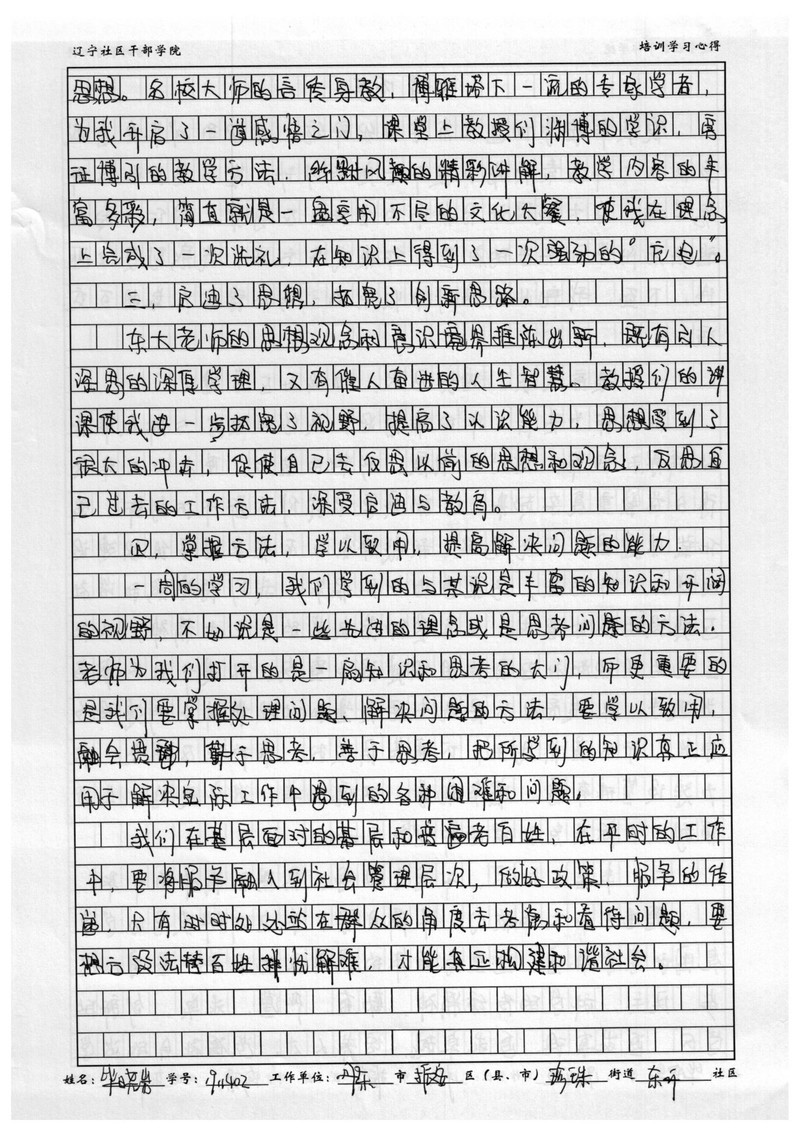 辽宁社区干部学院 培训学习心得
思想。名校大师的言传身教，博雅塔下一流的专家学者，
为我开启了一道感悟之门，课堂上教授们渊博的学识，旁
证博引的教学方法，幽默风趣的精彩讲解，教学内容的丰
富多彩，简直就是一盘享用不尽的文化大餐，使我在理念
上完成了一次洗礼，在知识上得到了一次强劲的“充电”。
三、启迪了思想，拓宽了创新思路。
东大老师的思想观念和意识境界推陈出新，既有引人
深思的深厚学理，又有催人奋进的人生智慧。教授们的讲
课使我进一步拓宽了视野，提高了认识能力，思想受到了
很大的冲击，促使自己去反思以前的思想和观念，反思自
己过去的工作方法，深受启迪与教育。
四、掌握方法，学以致用，提高解决问题的能力。
一周的学习，我们学到的与其说是丰富的知识和开阔
的视野，不如说是一些先进的理念或是思考问题的方法。
老师为我们打开的是一扇知识和思考的大门，而更重要的
是我们要掌握处理问题、解决问题的方法，要学以致用，
融会贯通，勤于思考，善于思考，把所学到的知识真正应
用于解决实际工作中遇到的各种困难和问题
我们在基层面对的基层和普遍老百姓，在平时的工作
中要将服务融入到社会管理层次，做好政策、服务的传
达，只有时时处处站在群众的角度去考虑和看待问题，要
想方设法替百姓排忧解难，才能真正构建和谐社会。
姓名： 学号： 工作单位：丹东 市 振安 区（县、市） 珍珠 街道 社区